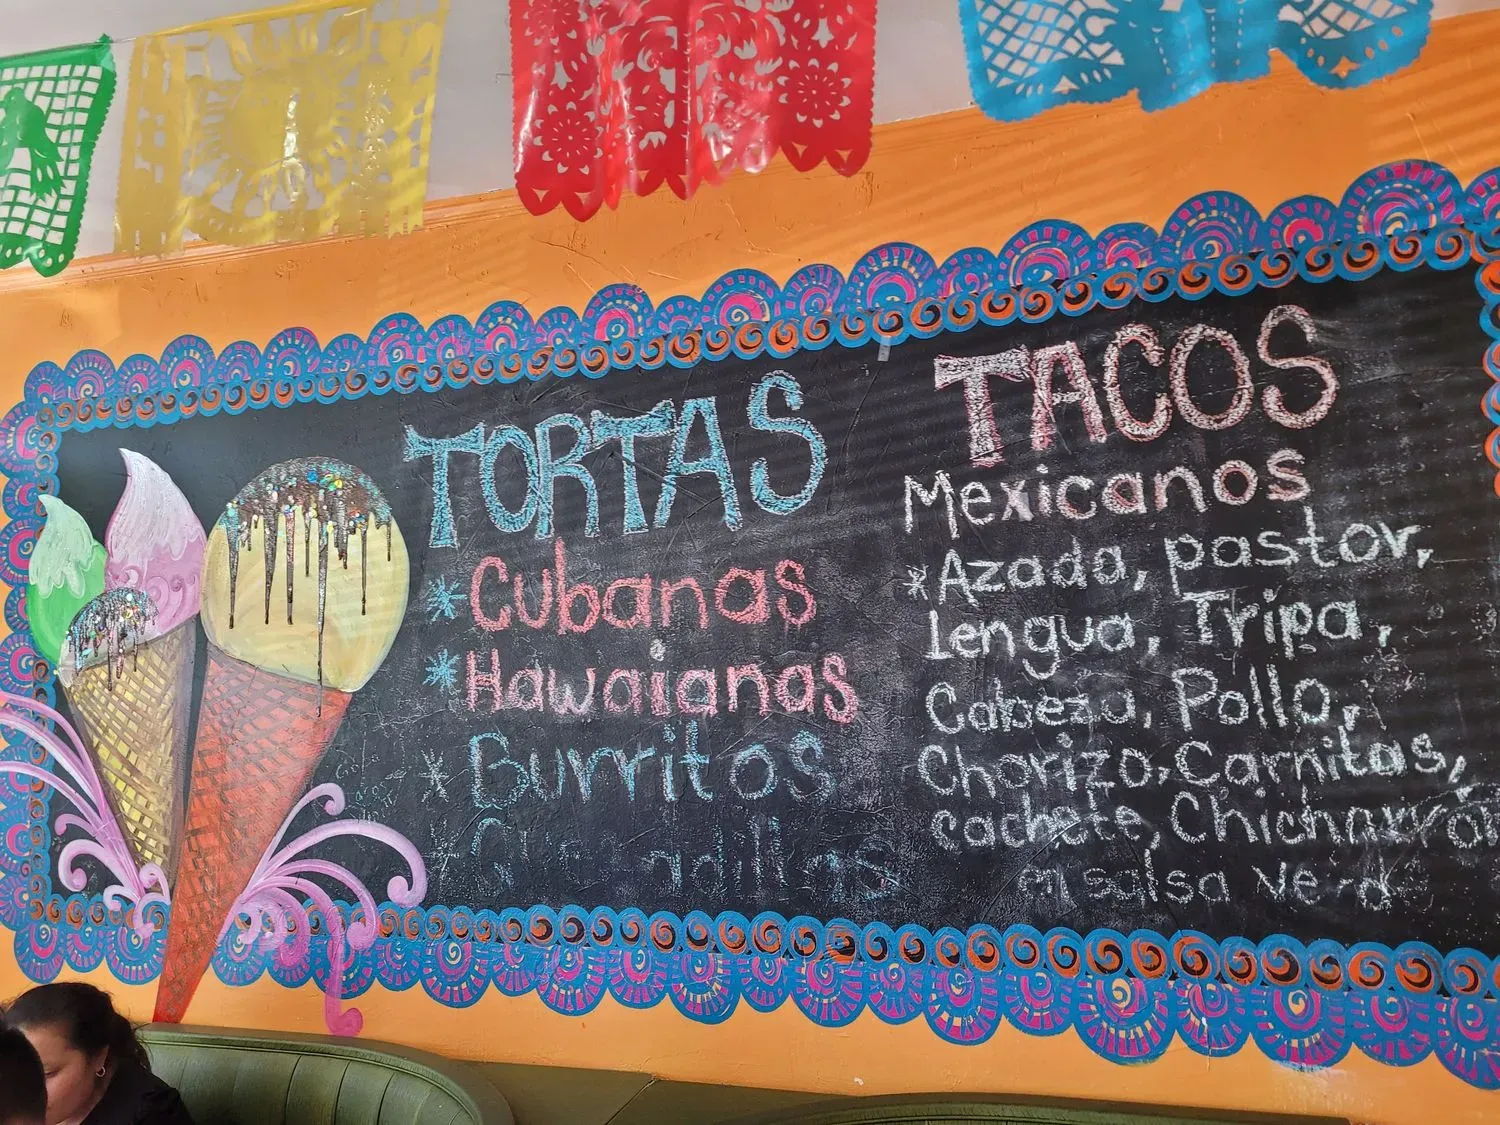 TORTAS
* Cubanas
* Hawaianas
* Burritos
TACOS
Mexicanos
*Azada, pastor,
lengua, Tripa,
Cabeza, Pollo,
Chorizo, Carnitas,
cachete, Chicharrón
en salsa verde